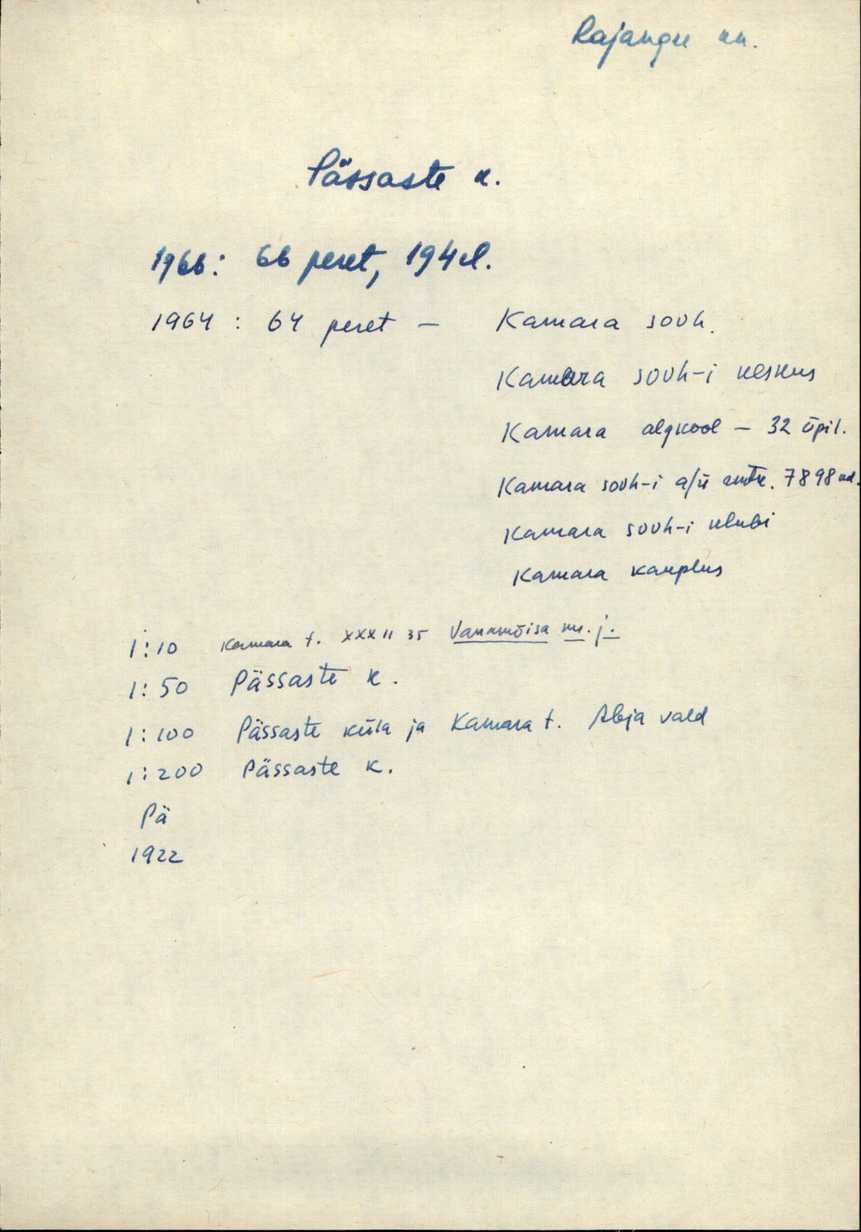 Rajangu kn.
Pässaste k.
1966: 66 peret, 194 el.
1964 : 64 peret – Kamara sovh.
Kamara sovh-i keskus
Kamara algkool – 32 õpil.
Kamara sovh-i a/ü rmtk. 7898 nd.
Kamara sovh-i klubi
Kamara kauplus
1:10 Kamara t. XXX II 35 Vanamõisa ms. j.
1:50 Pässaste k.
1:100 Pässaste küla ja Kamara t. Abja vald
1:200 Pässaste k.
Pä
1922